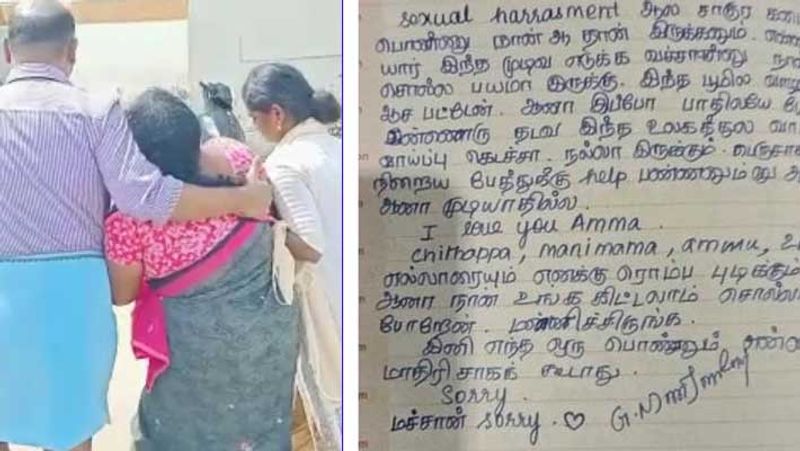 sexual harrasment ஆல சாகுர கடை
பொண்ணு நான் ஆ தான் இருக்கனும். என்ன
யார் இந்த முடிவ எடுக்க வச்சான்னு நா
சொல்ல பயமா இருக்கு. இந்த பூமில வாழ
ஆச பட்டேன். ஆனா இப்போ பாதிலயே
இன்னொரு தடவ இந்த உலகத்துல வா
வாய்ப்பு கெடச்சா. நல்லா இருக்கும். பெருசா
நிறைய பேத்துக்கு help பண்ணனும் னு ஆ
ஆனா முடியாதில்ல.
I love you Amma.
chithappa, manimama, ammu,
எல்லாரையும் எனக்கு ரொம்ப புடிக்கும்
ஆனா நான் உங்க கிட்டலாம் சொல்ல
போறேன். மன்னிச்சிருங்க.
இனி எந்த ஒரு பொண்ணும் என்ன
மாதிரி சாகக் கூடாது.
Sorry.
மச்சான் sorry.